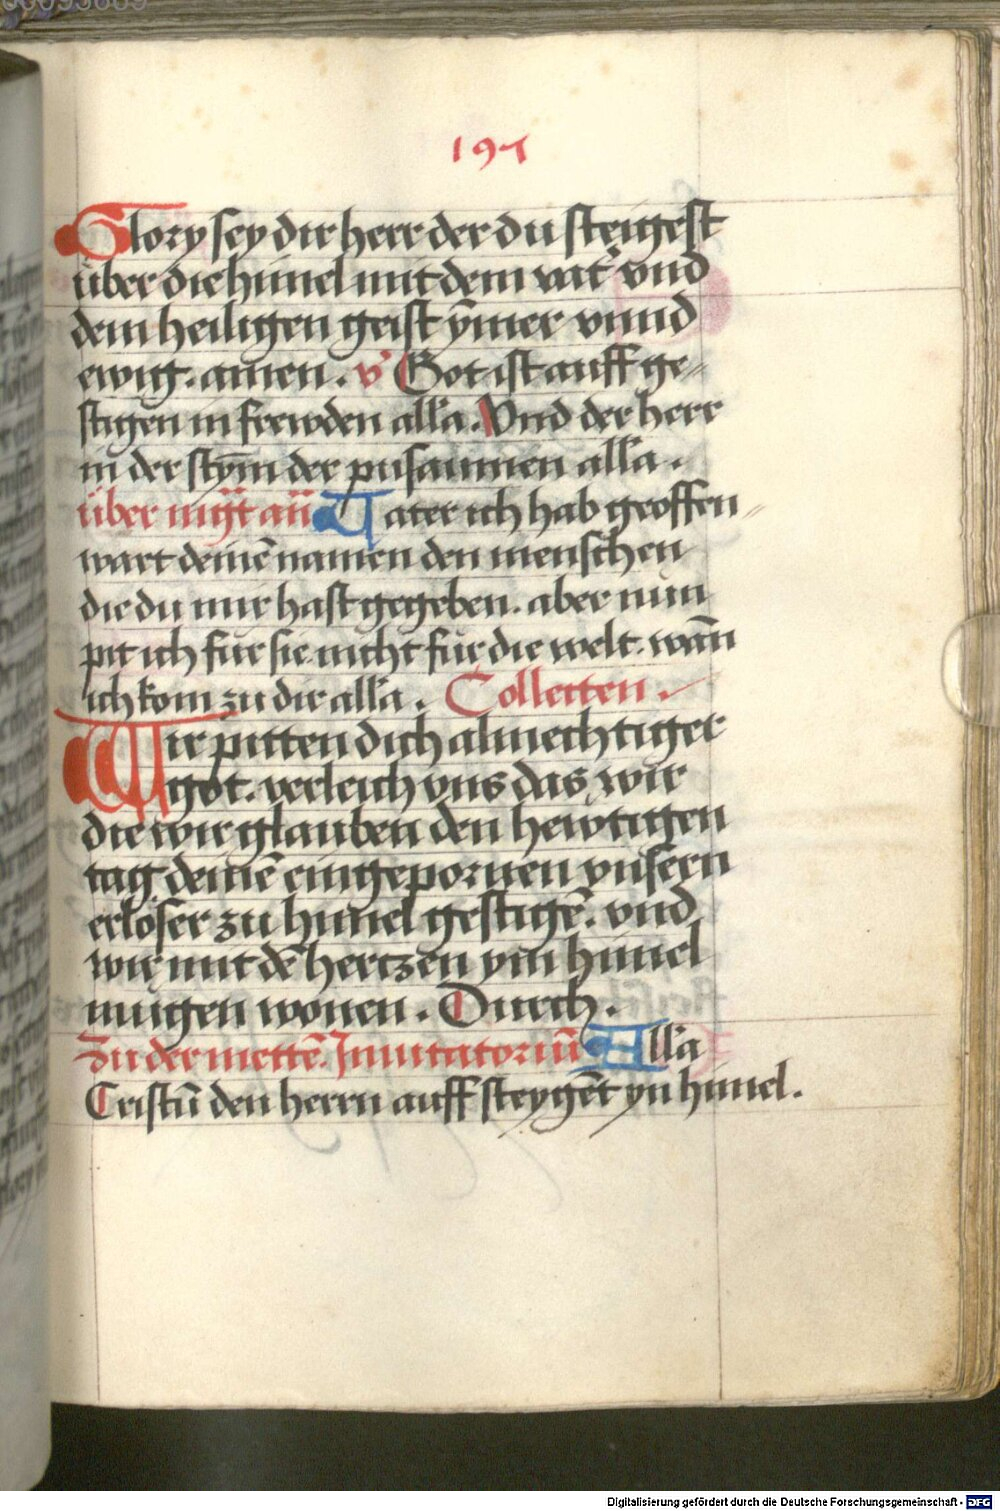 195
Glory sey dir herr der du steigest
über die himel mit dem vat' vnd
dem heiligen geist ÿmer vnnd
ewig. amen. v' Got ist auff ge=
stigen in frewden alla. Vnd der herr
in der stym̄ der pusaunen alla.
über mgt̄ an̄ Vater ich hab geoffen=
wart deinē namen den menschen
die du mir hast gegeben. aber nun
pit ich für sie nicht für die welt. wan̄
ich kom zu dir alla. Collecten.
Wir pitten dich almechtiger
got. verleich vns das wir
die wir glauben den hewtigen
tag deinē eingepornen vnsern
erlöser zu himel gestigē. vnd
wir mit dē hertzen yn himel
mugen wonen. Durch.
Zu der mettē. Inuitatoriū Alla
Cristū den herrn auff steygēt yn himel.
Digitalisierung gefördert durch die Deutsche Forschungsgemeinschaft - DFG